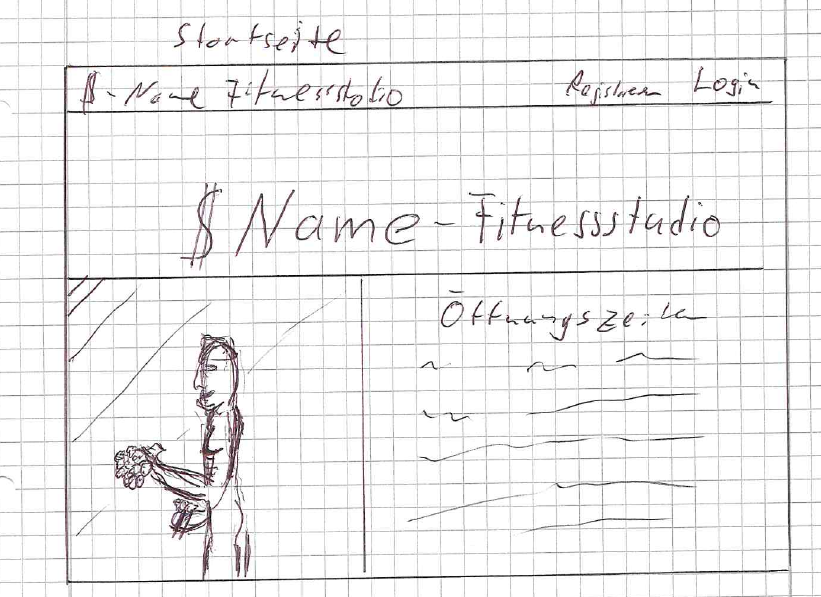 Startseite
$-Name Fitnessstudio Registrieren Login
$Name-Fitnessstudio
Öffnungszeiten